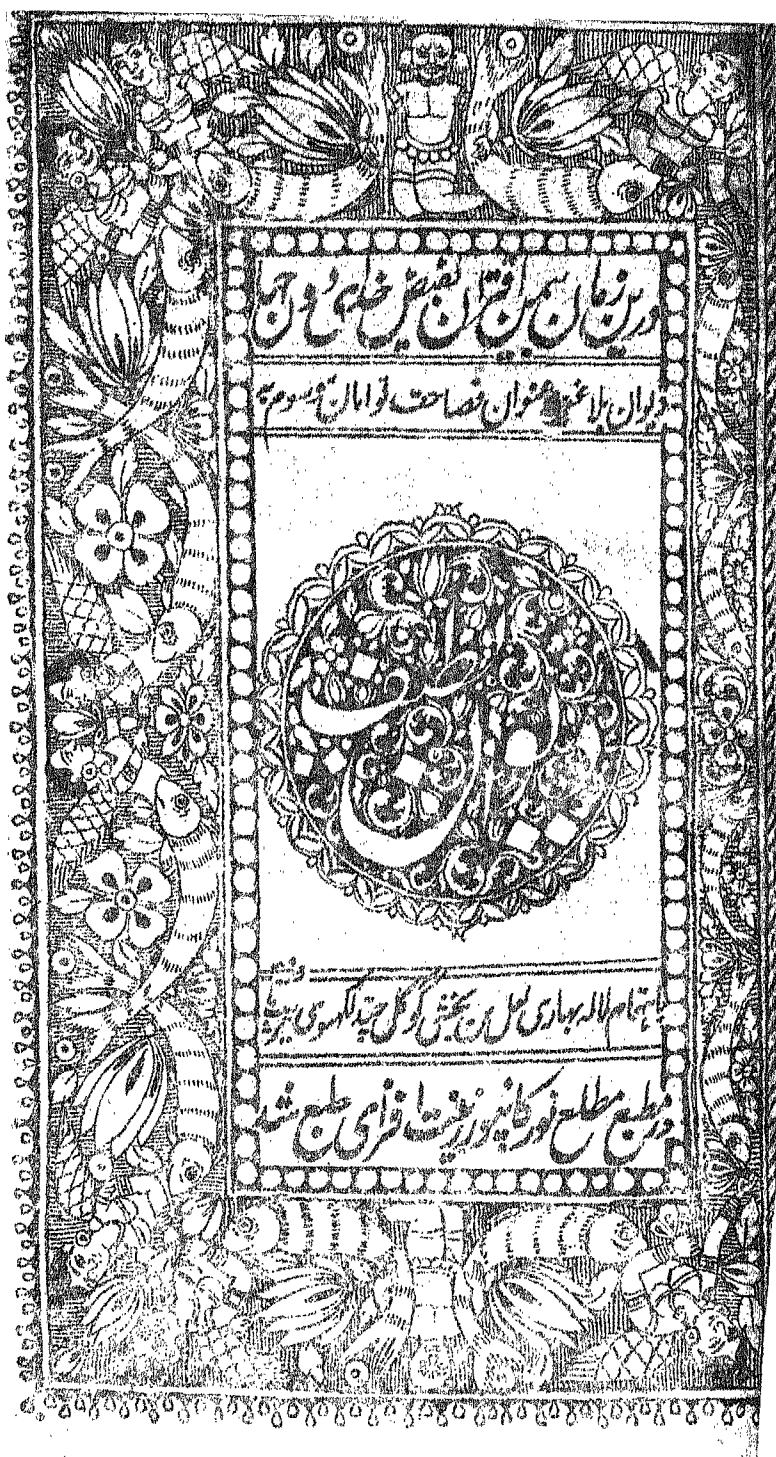 درین زمان یمن اقتران بفیض خدای دو جهان
دیوان بلاغت عنوان فصاحت توامان موسوم به
دیوان واصف
باهتمام لاله بهاری لعل من بخشی گوکل چند لکهنوی
در مطبع مطلع نور کانپور زینت افزای طبع شد